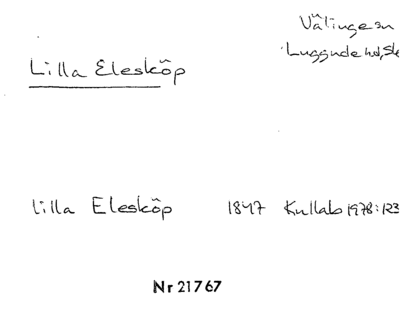 Välinge sn
Luggude hd, Sk
Lilla Elesköp
lilla Elesköp 1847 Kullab 1978:123
Nr 21767